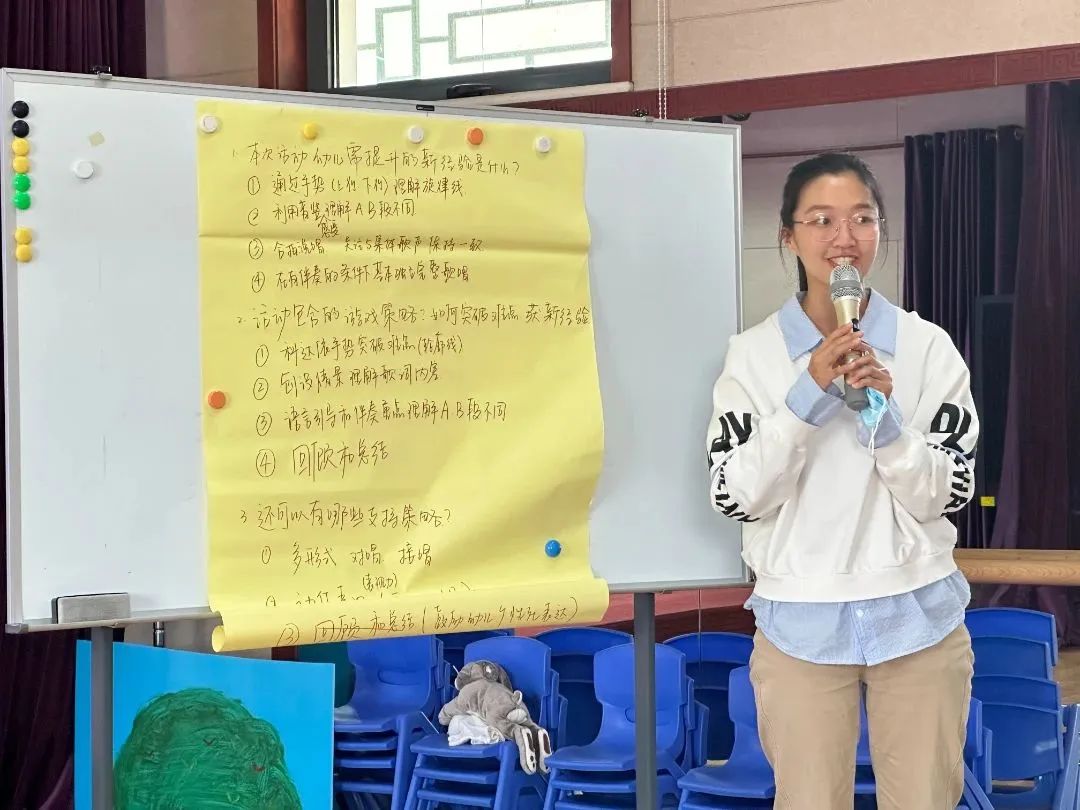 1. 本次活动幼儿需提升的新经验是什么?
① 通过手势(上行下行)理解旋律线
② 利用 理解AB段不同
③ 合拍演唱 与集体歌声保持一致
④ 在有伴奏的条件下基本独立完整歌唱
2. 活动包含的游戏策略?如何突破难点 获新经验
① 手势突破难点(旋律线)
② 创设情景理解歌词内容
③ 语言引导和伴奏重点理解A、B段不同
④ 回顾和总结
3. 还可以有哪些支持策略?
① 多形式 对唱、接唱
(表现力)
③ 回顾和总结(鼓励幼儿个性化表达)